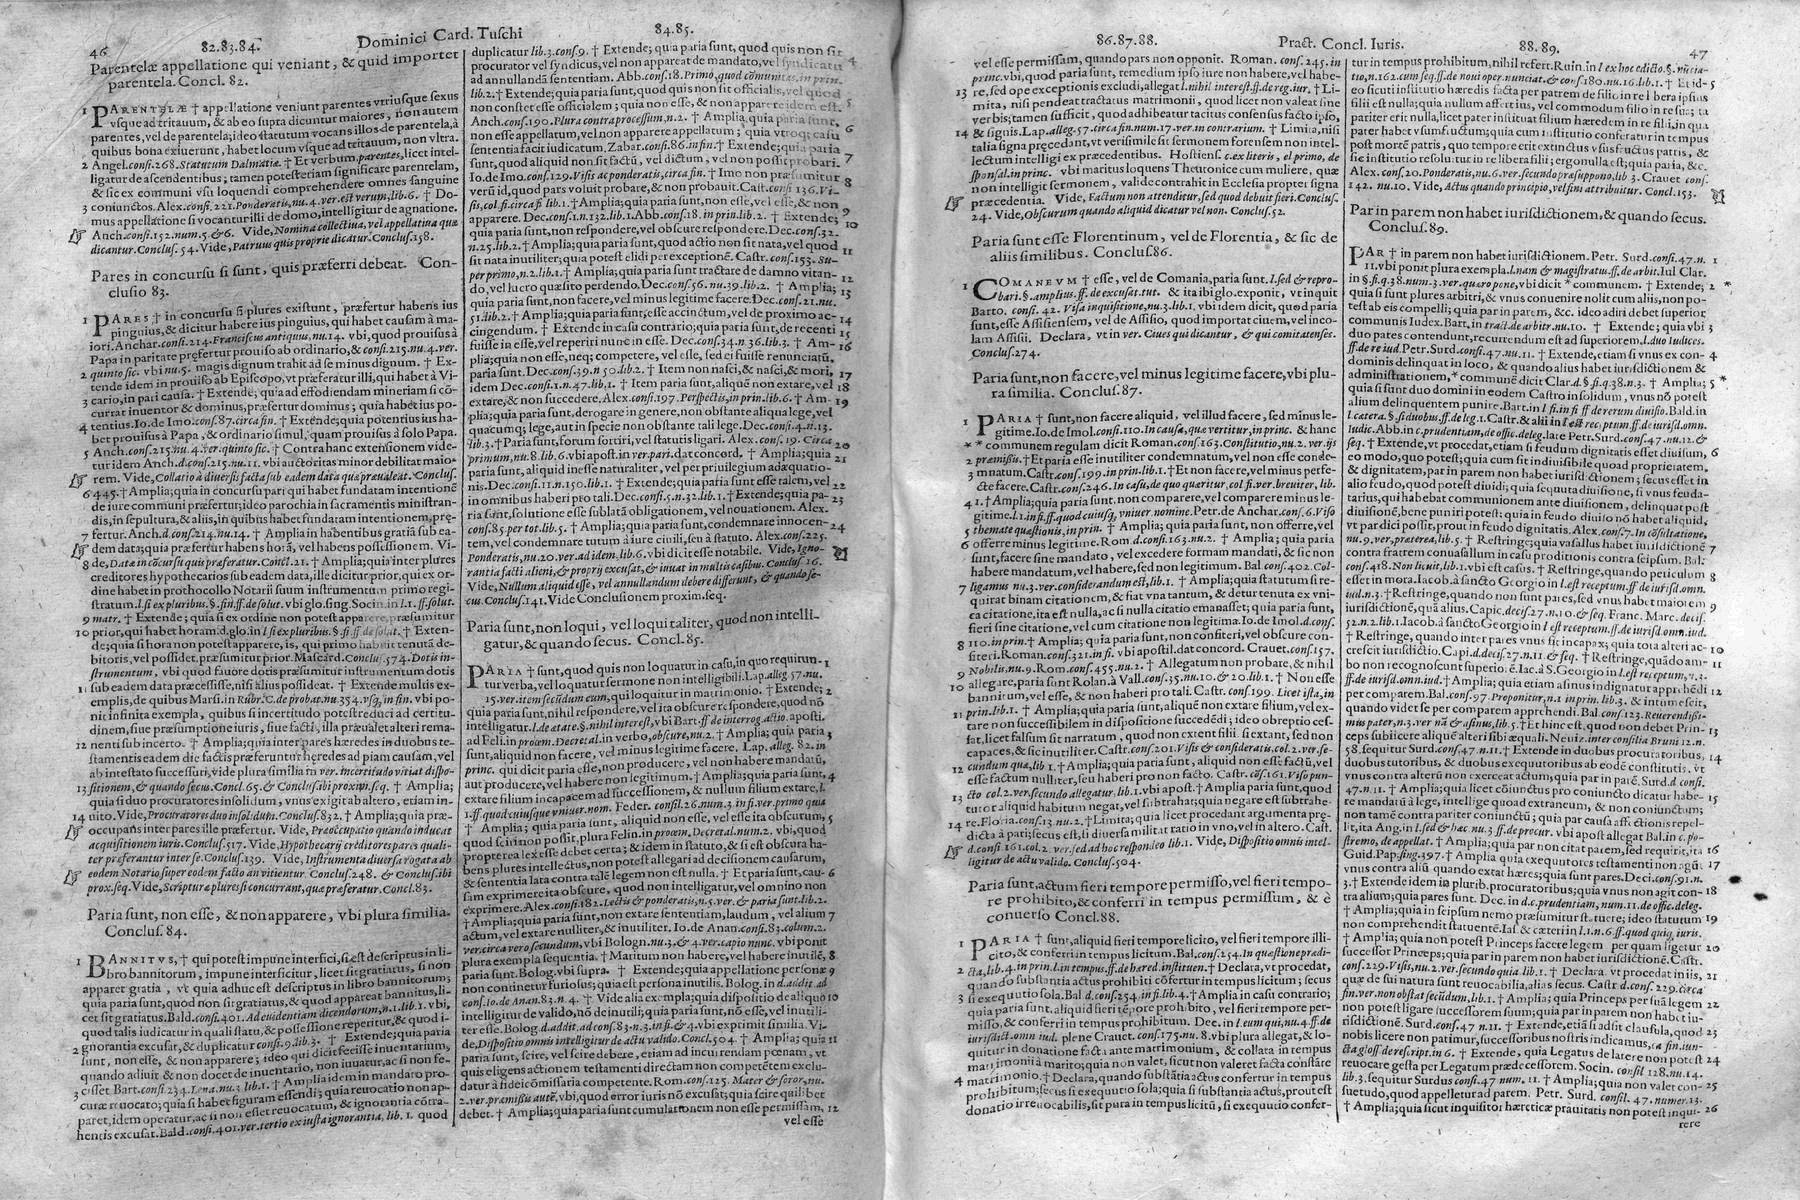 46 82.83.84. Dominici Card. Tuschi 84.85.
Parentelæ appellatione qui veniant, & quid importet
parentela. Concl. 82.
1 PARENTELÆ † appellatione veniunt parentes vtriusque sexus
vsque ad tritauum, & ab eo supra dicuntur maiores, non autem
parentes, vel de parentela; ideo statutum vocans illos de parentela, à
quibus bona exiuerunt, habet locum vsque ad tritauum, non vltra.
2 Angel. consi. 268. Statutum Dalmatiæ. † Et verbum, parentes, licet intel-
ligatur de ascendentibus; tamen potest etiam significare parentelam,
& sic ex communi vsu loquendi comprehendere omnes sanguine
3 coniunctos. Alex. consi. 221. Ponderatis, nu. 4. ver. est verum, lib. 6. † Do-
mus appellatione si vocantur illi de domo, intelligitur de agnatione.
Anch. consi. 152. num. 5. & 6. Vide, Nomina collectiua, vel appellatiua quæ
dicantur. Conclus. 54. Vide, Patruus quis proprie dicatur. Conclus. 158.
Pares in concursu si sunt, quis præferri debeat. Con-
clusio 83.
1 PARES † in concursu si plures existunt, præfertur habens ius
pinguius, & dicitur habere ius pinguius, qui habet causam à ma-
iori. Anchar. consi. 214. Franciscus antiquus, nu. 14. vbi, quod prouisus à
Papa in paritate præfertur prouiso ab ordinario, & consi. 215. nu. 4. ver.
2 quinto sic. vbi nu. 5. magis dignum trahit ad se minus dignum. † Ex-
tende idem in prouiso ab Episcopo, vt præferatur illi, qui habet à Vi-
3 cario, in pari causa. † Extende; quia ad effodiendam mineriam si cō-
currat inuentor & dominus, præfertur dominus; quia habet ius po-
4 tentius. Io. de Imo. cons. 87. circa fin. † Extende; quia potentius ius ha-
bet prouisus à Papa, & ordinario simul, quam prouisus à solo Papa.
5 Anch. cons. 215. nu. 4. ver. quinto sic. † Contra hanc extensionem vide-
tur idem Anch. d. cons. 215. nu. 11. vbi auctoritas minor debilitat maio-
rem. Vide, Collatio à diuersis facta sub eadem data quæ præualeat. Conclus.
6 445. † Amplia; quia in concursu pari qui habet fundatam intentionē
de iure communi præfertur; ideo parochia in sacramentis ministran-
dis, in sepultura, & aliis, in quibus habet fundatam intentionem, prę-
7 fertur. Anch. d. cons. 214. nu. 14. † Amplia in habentibus gratiā sub ea-
dem data; quia præfertur habens horā, vel habens possessionem. Vi-
8 de, Data in concursu quis præferatur. Concl. 21. † Amplia; quia inter plures
creditores hypothecarios sub eadem data, ille dicitur prior, qui ex or-
dine habet in prothocollo Notarii suum instrumentum primo regi-
stratum. l. si ex pluribus. §. fin. ff. de solut. vbi glo. sing. Socin. in l. 1. ff. solut.
9 matr. † Extende; quia si ex ordine non potest apparere, præsumitur
10 prior, qui habet horam. d. glo. in l. si ex pluribus. §. fi. ff. de solut. † Exten-
de; quia si hora non potest apparere, is, qui primo habuit tenutā de-
bitoris, vel possidet, præsumitur prior. Mascard. Conclus. 574. Dotis in-
strumentum, vbi quod fauore dotis præsumitur instrumentum dotis
11 sub eadem data præcessisse, nisi alius possideat. † Extende multis ex-
emplis, de quibus Marsi. in Rubr. C. de probat. nu. 354. vsq; in fin. vbi po-
nit infinita exempla, quibus si incertitudo potest reduci ad certitu-
dinem, siue præsumptione iuris, siue facti, illa præualet alteri rema-
12 nenti sub incerto. † Amplia; quia inter pares hæredes in duobus te-
stamentis eadem die factis præferuntur heredes ad piam causam, vel
ab intestato successuri, vide plura similia in ver. incertitudo vitiat dispo-
13 sitionem, & quando secus. Concl. 65. & Conclus. ibi proxim. seq. † Amplia;
quia si duo procuratores insolidum, vnus exigit ab altero, etiam in-
14 uito. Vide, Procuratores duo insolidum. Conclus. 832. † Amplia; quia præ-
occupans inter pares ille præfertur. Vide, Præoccupatio quando inducat
acquisitionem iuris. Conclus. 517. Vide, Hypothecarij creditores pares quali-
ter præferantur inter se. Conclus. 139. Vide, Instrumenta diuersa rogata ab
eodem Notario super eodem facto an vitientur. Conclus. 248. & Conclus. ibi
prox. seq. Vide, Scripturæ plures si concurrant, quæ præferatur. Concl. 83.
Paria sunt, non esse, & non apparere, vbi plura similia.
Conclus. 84.
1 BANNITVS, † qui potest impune interfici, si est descriptus in li-
bro bannitorum, impune interficitur, licet sit gratiatus, si non
apparet gratia, vt quia adhuc est descriptus in libro bannitorum;
quia paria sunt, quod non sit gratiatus, & quod appareat bannitus, li-
cet sit gratiatus. Bald. consi. 401. Ad euidentiam dicendorum, n. 1. lib. 1. vbi,
quod talis iudicatur in quali statu, & possessione reperitur, & quod i-
gnorantia excusat, & duplicatur consi. 9. lib. 3. † Extende; quia paria
2 sunt, non esse, & non apparere; ideo qui dicit fecisse inuentarium,
quando adiuit & non docet de inuentario, non iuuatur, ac si non fe-
3 cisset. Bart. consi. 234. Lena. nu. 3. lib. 1. † Amplia idem in mandato pro-
curæ reuocato; quia si habet figuram essendi; quia reuocatio non ap-
paret, idem operatur, ac si non esset reuocatum, & ignorantia cōtra-
hentis excusat. Bald. consi. 401. ver. tertio ex iusta ignorantia, lib. 1. quod
duplicatur lib. 3. cons. 9. † Extende; quia paria sunt, quod quis non sit
procurator vel syndicus, vel non appareat de mandato, vel syndicatu 4
ad annullandā sententiam. Abb. cons. 18. Primo, quod cōmunitas, in prin.
lib. 2. † Extende; quia paria sunt, quod quis non sit officialis, vel quod
non constet esse officialem; quia non esse, & non apparere idem est. 5
Anch. cons. 190. Plura contra processum, n. 2. † Amplia, quia paria sunt,
non esse appellatum, vel non apparere appellatum; quia vtroq; casu 6
sententia facit iudicatum. Zabar. cons. 86. in fin. † Extende; quia paria
sunt, quod aliquid non sit factū, vel dictum, vel non possit probari. 7
Io. de Imo. cons. 129. Visis ac ponderatis, circa fin. † Imo non præsumitur
verū id, quod pars voluit probare, & non probauit. Cast. consi 136. Vi- 8
sis, col. fi. circa fi. lib. 1. † Amplia; quia paria sunt, non esse, vel esse, & nō
apparere. Dec. cons. 1. n. 132. lib. 1. Abb. cons. 18. in prin. lib. 2. † Extende; 9
quia paria sunt, non respondere, vel obscure respondere. Dec. cons. 32. 10
n. 25. lib. 2. † Amplia; quia paria sunt, quod actio non sit nata, vel quod
sit nata inutiliter; quia potest elidi per exceptionē. Castr. cons. 153. Su- 11
per primo, n. 2. lib. 1. † Amplia; quia paria sunt tractare de damno vitan-
do, vel lucro quæsito perdendo. Dec. cons. 56. nu. 39. lib. 2. † Amplia; 12
quia paria sunt, non facere, vel minus legitime facere. Dec. cons. 21. nu. 13
51. lib. 2. † Amplia; quia paria sunt, esse accinctum, vel de proximo ac-
cingendum. † Extende in casu contrario; quia paria sunt, de recenti 14
fuisse in esse, vel reperiri nunc in esse. Dec. cons. 34. n. 36. lib. 3. † Am- 15
plia; quia non esse, neq; competere, vel esse, sed ei fuisse renunciatū, 16
paria sunt. Dec. cons. 39. n 50. lib. 2. † Item non nasci, & nasci, & mori,
idem Dec. cons. 1. n. 47. lib. 1. † Item paria sunt, aliquē non extare, vel 17
extare, & non succedere. Alex. cons. 197. Perspectis, in prin. lib. 6. † Am- 18
plia; quia paria sunt, derogare in genere, non obstante aliqua lege, vel 19
quacumq; lege, aut in specie non obstante tali lege. Dec. cons. 4. n. 13.
lib. 3. † Paria sunt, forum sortiri, vel statutis ligari. Alex. cons. 19. Circa
primum, nu. 8. lib. 6. vbi apost. in ver. pari. dat concord. † Amplia; quia 20
paria sunt, aliquid inesse naturaliter, vel per priuilegium adæquatio- 21
nis. Dec. cons. 11. n. 150. lib. 1. † Extende; quia paria sunt esse talem, vel
in omnibus haberi pro tali. Dec. cons. 5. n. 32. lib. 1. † Extende; quia pa- 22
ria sunt, solutione esse sublatā obligationem, vel nouationem. Alex. 23
cons. 85. per tot. lib. 5. † Amplia; quia paria sunt, condemnare innocen-
tem, vel condemnare tutum à iure ciuili, seu à statuto. Alex. cons. 225. 24
Ponderatis, nu. 20. ver. ad idem. lib. 6. vbi dicit esse notabile. Vide, Igno-
rantia facti alieni, & proprij excusat, & iuuat in multis casibus. Conclus. 16.
Vide, Nullum aliquid esse, vel annullandum debere differunt, & quando se-
cus. Conclus. 141. Vide Conclusionem proxim. seq.
Paria sunt, non loqui, vel loqui taliter, quod non intelli-
gatur, & quando secus. Concl. 85.
PARIA † sunt, quod quis non loquatur in casu, in quo requirun- 1
tur verba, vel loquatur sermone non intelligibili. Lap. alleg. 57. nu.
15. ver. item secūdum eum, qui loquitur in matrimonio. † Extende; 2
quia paria sunt, nihil respondere, vel ita obscure respondere, quod nō
intelligatur. l. de ætate. §. nihil interest, vbi Bart. ff. de interrog. actio. aposti.
ad Feli. in proœm. Decretal. in verbo, obscure, nu. 2. † Amplia; quia paria 3
sunt, aliquid non facere, vel minus legitime facere. Lap. alleg. 82. in
princ. qui dicit paria esse, non producere, vel non habere mandatū,
aut producere, vel habere non legitimum. † Amplia; quia paria sunt, 4
extare filium incapacem ad successionem, & nullum filium extare. l.
1. ff. quod cuiusque vniuer. nom. Feder. consil. 26. num. 3. in fi. ver. primo quia
† Amplia; quia paria sunt, aliquid non esse, vel esse ita obscurum, 5
quod sciri non possit, plura Felin. in proœm. Decretal. num. 2. vbi, quod
propterea lex esse debet certa; & idem in statuto, & si est obscura ha-
bens plures intellectus, non potest allegari ad decisionem causarum,
& sententia lata contra talē legem non est nulla. † Et paria sunt, cau- 6
te ita obscure, quod non intelligatur, vel omnino non
exprimere. Alex. cons. 182. Lectis & ponderatis, n. 5. ver. & paria sunt. lib. 2.
† Amplia; quia paria sunt, non extare sententiam, laudum, vel alium 7
actum, vel extare nulliter, & inutiliter. Io. de Anan. consi. 83. colum. 2.
ver. circa vero secundum, vbi Bologn. nu. 3. & 4. ver. capio nunc. vbi ponit
plura exempla sequentia. † Maritum non habere, vel habere inutilē, 8
paria sunt. Bolog. vbi supra. † Extende; quia appellatione personæ 9
non continetur furiosus; quia est persona inutilis. Bolog. in d. addit. ad
cons. Io. de Anan. 83. n. 4. † Vide alia exempla; quia dispositio de aliquo 10
intelligitur de valido, nō de inutili; quia paria sunt, nō esse, vel inuti-
liter esse. Bolog. d. addit. ad cons. 83. n. 3. in fi. & 4. vbi exprimit similia. Vi-
de, Dispositio omnis intelligitur de actu valido. Concl. 504. † Amplia; quia 11
paria sunt, scire, vel scire debere, etiam ad incurrendam pœnam, vt
quis eligens actionem testamenti directam non competētem exclu-
datur à fideicōmissaria competente. Rom. cons. 125. Mater & soror, nu.
2. ver. præmissis autē, vbi, quod error iuris nō excusat; quia scire quilibet
debet. † Amplia; quia paria sunt cumulationem non esse permissam, 12
vel esse
86.87.88. Pract. Concl. Iuris. 88.89. 47
vel esse permissam, quando pars non opponit. Roman. cons. 245. in
princ. vbi, quod paria sunt, remedium ipso iure non habere, vel habe-
13 re, sed ope exceptionis excludi, allegat l. nihil. interest. ff. de reg. iur. † Li-
mita, nisi pendeat tractatus matrimonii, quod licet non valeat sine
verbis; tamen sufficit, quod adhibeatur tacitus consensus facto ipso,
14 & signis. Lap. alleg. 57. circa fin. num. 17. ver. in contrarium. † Limita, nisi
talia signa pręcedant, vt verisimile sit sermonem forensem non intel-
lectum intelligi ex præcedentibus. Hostiens. c. ex literis, el primo, de
sponsal. in princ. vbi maritus loquens Theutonice cum muliere, quæ
non intelligit sermonem, valide contrahit in Ecclesia propter signa
præcedentia. Vide, Factum non attenditur, sed quod debuit fieri. Conclus.
24. Vide, Obscurum quando aliquid dicatur vel non. Conclus. 52.
Paria sunt esse Florentinum, vel de Florentia, & sic de
aliis similibus. Conclus. 86.
1 COMANEVM † esse, vel de Comania, paria sunt. l. sed & repro-
bari. §. amplius. ff. de excusat. tut. & ita ibi glo. exponit, vt inquit
Barto. consi. 42. Visa inquisitione, nu. 3. lib. 1. vbi idem dicit, quod paria
sunt, esse Assisiensem, vel de Assisio, quod importat ciuem, vel inco-
lam Assisii. Declara, vt in ver. Ciues qui dicantur, & qui comitatenses.
Conclus. 274.
Paria sunt, non facere, vel minus legitime facere, vbi plu-
ra similia. Conclus. 87.
1 PARIA † sunt, non facere aliquid, vel illud facere, sed minus le-
gitime. Io. de Imol. cons. 110. In causa, quæ vertitur, in princ. & hanc
* * communem regulam dicit Roman. cons. 163. Constitutio, nu. 2. ver. ijs
2 præmissis. † Et paria esse inutiliter condemnatum, vel non esse conde-
3 mnatum. Castr. cons. 199. in prin. lib. 1. † Et non facere, vel minus perfe-
cte facere. Castr. cons. 246. In casu, de quo quæritur, col. fi. ver. breuiter, lib.
4 1. † Amplia; quia paria sunt, non comparere, vel comparere minus le-
gitime. l. 1. in fi. ff. quod cuiusq; vniuer. nomine. Petr. de Anchar. cons. 6. Viso
5 themate quæstionis, in prin. † Amplia; quia paria sunt, non offerre, vel
6 offerre minus legitime. Rom. d. cons. 163. nu. 2. † Amplia; quia paria
sunt, facere sine mandato, vel excedere formam mandati, & sic non
habere mandatum, vel habere, sed non legitimum. Bal. cons. 402. Col-
7 ligamus nu. 3. ver. considerandum est, lib. 1. † Amplia; quia statutum si re-
quirat binam citationem, & fiat vna tantum, & detur tenuta ex vni-
ca citatione, ita est nulla, ac si nulla citatio emanasset; quia paria sunt,
fieri sine citatione, vel cum citatione non legitima. Io. de Imol. d. cons.
8 110. in prin. † Amplia; quia paria sunt, non confiteri, vel obscure con-
fiteri. Roman. cons. 321. in fi. vbi apostil. dat concord. Crauet. cons. 157.
9 Nobilis, nu. 9. Rom. cons. 455. nu. 2. † Allegatum non probare, & nihil
10 allegare, paria sunt Rolan. à Vall. cons. 35. nu. 10. & 20. lib. 1. † Non esse
bannitum, vel esse, & non haberi pro tali. Castr. cons. 199. Licet ista, in
11 prin. lib. 1. † Amplia; quia paria sunt, aliquē non extare filium, vel ex-
tare non successibilem in dispositione succedēdi; ideo obreptio ces-
sat, licet falsum sit narratum, quod non extent filii si extant, sed non
capaces, & sic inutiliter. Castr. cons. 201. Visis & consideratis, col. 2. ver. se-
12 cundum qua, lib 1. † Amplia; quia paria sunt, aliquid non esse factū, vel
esse factum nulliter, seu haberi pro non facto. Castr. cōs. 161. Viso pun-
13 cto col. 2. ver. secundo allegatur, lib. 1. vbi apost. † Amplia paria sunt, quod
tutor aliquid habitum negat, vel subtrahat; quia negare est subtrahe-
14 re. Floria. cons. 13. nu. 2. † Limita; quia licet procedant argumenta prę-
dicta à pari; secus est, si diuersa militat ratio in vno, vel in altero. Cast.
d. consi. 161. col. 2. ver. sed ad hoc respondeo lib. 1. Vide, Dispositio omnis intel-
ligitur de actu valido. Conclus. 504.
Paria sunt, actum fieri tempore permisso, vel fieri tempo-
re prohibito, & conferri in tempus permissum, & è
conuerso Concl. 88.
1 PARIA † sunt, aliquid fieri tempore licito, vel fieri tempore illi-
cito, & conferri in tempus licitum. Bal. cons. 254. In quæstione prædi-
2 cta, lib. 4. in prin. l. in tempus. ff. de hared. instituen. † Declara, vt procedat,
quando substantia actus prohibiti cōfertur in tempus licitum; secus
3 si exequutio sola. Bal d. cons. 254. in fi. lib. 4. † Amplia in casu contrario;
quia paria sunt, aliquid fieri tēpore prohibito, vel fieri tempore per-
misso, & conferri in tempus prohibitum. Dec. in l. eum qui, nu. 4. ff. de
iurisdict. omn. iud. plene Crauet. cons. 175. nu. 8. vbi plura allegat, & lo-
quitur in donatione facta ante matrimonium, & collata in tempus
matrimonii à marito; quia non valet, sicut non valeret facta constāte
4 matrimonio. † Declara, quando substātia actus confertur in tempus
prohibitum; secus si exequutio sola; quia si substantia actus, prout est
donatio irreuocabilis, sit pura in tempus licitū, si exequutio confer-
tur in tempus prohibitum, nihil refert. Ruin. in l ex hoc edicto. §. nūcia-
tio, n. 162. cum seq. ff. de noui oper. nunciat. & cons 180. nu. 16. lib. 1. † Et id- 5
eo si cuti institutio hæredis facta per patrem de filio in rel hera ipsius
filii est nulla; quia nullum affert ius, vel commodum filio in re sua; ita
pariter erit nulla, licet pater instituat filium hæredem in re filii, in qua
pater habet vsumfructum; quia cum institutio conferatur in tempus
post mortē patris, quo tempore erit extinctus vsusfructus patris, &
sic institutio resoluitur in re libera filii; ergo nulla est; quia paria, &c.
Alex. cons. 20. Ponderatis, nu. 6. ver. secundo præsuppono, lib 3. Crauet cons.
142. nu. 10. Vide, Actus quando principio, vel fini attribuitur. Concl. 153.
Par in parem non habet iurisdictionem, & quando secus.
Conclus. 89.
PAR † in parem non habet iurisdictionem. Petr. Surd. consi. 47. n. 1
11. vbi ponit plura exempla. l. nam & magistratus. ff. de arbit. Iul Clar.
in §. fi. q. 38. num. 3. ver. quæro pone, vbi dicit * communem. † Extende; 2 *
quia si sunt plures arbitri, & vnus conuenire nolit cum aliis, non po-
test ab eis compelli; quia par in parem, &c. ideo adiri debet superior
communis Iudex. Bart. in tract. de arbitr. nu. 10. † Extende; quia vbi 3
duo pares contendunt, recurrendum est ad superiorem, l. duo Iudices.
ff. de re iud. Petr. Surd. cons. 47. nu. 11. † Extende, etiam si vnus ex con- 4
dominis delinquat in loco, & quando alius habet iurisdictionem &
administrationem, * communē dicit Clar. d. §. fi. q. 38. n. 3. † Amplia; 5 *
quia si sunt duo domini in eodem Castro in solidum, vnus nō potest
alium delinquentem punire. Bart. in l fi. in fi ff de rerum diuisio. Bald. in
l. catera. §. si duobus. ff. de leg. 1. Castr. & alii in l est receptum. ff. de iurisd. omn.
Iudic. Abb. in c. prudentiam, de offic. deleg. late Petr. Surd. cons. 47. nu. 12. &
seq. † Extende, vt procedat, etiam si feudum dignitatis esset diuisum, 6
eo modo, quo potest; quia cum sit indiuisibile quoad proprietatem,
& dignitatem, par in parem non habet iurisdictionem; secus esset in
alio feudo, quod potest diuidi; quia sequuta diuisione, si vnus feuda-
tarius, qui habebat communionem ante diuisionem, delinquat post
diuisionē, bene puniri potest; quia in feudo diuiso nō habet aliquid,
vt par dici possit, prout in feudo dignitatis. Alex. cons. 7. In cōsultatione,
nu. 9, ver. præterea, lib. 5. † Restringe; quia vasallus habet iurisdictionē 7
contra fratrem conuasallum in casu proditionis contra seipsum. Bal.
cons. 418. Non licuit, lib. 1. vbi est casus. † Restringe, quando periculum
esset in mora. Iacob. à sancto Georgio in l. est receptum ff. de iurisd. omn. 8
iud. n. 3. † Restringe, quando non sunt pares, sed vnus habet maiorem
iurisdictionē, quā alius. Capic. decis. 27. n. 10. & seq. Franc. Marc. decis. 9
52. n. 2. lib. 1. Iacob. à sancto Georgio in l. est receptum. ff. de iurisd. omn. iud.
† Restringe, quando inter pares vnus sit incapax; quia tota alteri ac-
crescit iurisdictio. Capi. d. decis. 27. n. 11. & seq. † Restringe, quādo am- 10
bo non recognoscunt superiorē. Iac. à S. Georgio in l. est receptum, n. 2. 11
ff. de iurisd. omn. iud. † Amplia; quia etiam asinus indignatur apprehēdi
per comparem. Bal. cons. 97. Proponitur, n. 1 in prin. lib. 3. & intumescit, 12
quando videt se per comparem apprehendi. Bal cons. 123. Reuerendissi-
mus pater, n. 3. ver. nā & asinus, lib. 5. † Et hinc est, quod non debet Prin- 13
ceps subiicere aliquē alteri sibi æquali. Neuiz. inter consilia Bruni 12. n.
58. sequitur Surd. cons. 47. n. 11. † Extende in duobus procuratoribus,
duobus tutoribus, & duobus exequutoribus ab eodē constitutis, vt 14
vnus contra alterū non exerceat actum; quia par in parē. Surd. d consi.
47. n. 11. † Amplia; quia licet cōiunctus pro coniuncto dicatur habe-
re mandatū à lege, intellige quoad extraneum, & non coniunctum; 15
non tamē contra pariter coniunctū; quia par causa affectionis repel-
lit, ita Ang. in l. sed & hac nu. 3 ff. de precur. vbi apost allegat Bal. in c. po-
stremo, de appellat. † Amplia; quia par non citat parem, sed requirit, ita 16
Guid. Pap. sing. 397. † Amplia quia exequutores testamenti non agūt 17
vnus contra aliū quando extat hæres; quia sunt pares. Deci. cons. 91. n.
3. † Extende idem in plurib. procuratoribus; quia vnus non agit con- 18
tra alium; quia pares sunt. Dec. in d. c. prudentiam, num. 11. de offic. deleg.
† Amplia; quia in seipsum nemo præsumitur statuere; ideo statutum 19
non comprehendit statuentē. Ias. & cæteri in l. 1. n. 6. ff. quod quisq. iuris.
† Amplia; quia non potest Princeps facere legem per quam ligetur 20
successor Princeps; quia par in parem non habet iurisdictionē. Castr.
cons. 229. Visis, nu. 2. ver. secundo quia. lib. 1. † Declara. vt procedat in iis, 21
quæ de sui natura sunt reuocabilia, alias secus. Castr d. cons. 229. circa
fin. ver. non obstat secūdum, lib. 1. † Amplia; quia Princeps per suā legem 22
non potest ligare successorem suum; quia par in parem non habet iu-
risdictionē. Surd. cons. 47 n. 11. † Extende, etiā si adsit clausula, quod
nobis licere non patimur, successoribus nostris indicamus, ca fin. iun- 23
cta glo. ff de rescript. in 6. † Extende, quia Legatus de latere non potest 24
reuocare gesta per Legatum prædecessorem. Socin. consi. 128. nu. 14.
lib. 3. sequitur Surdus cons. 47 num. 11. † Amplia; quia non valet con- 25
suetudo, quod appelletur ad parem. Petr. Surd. consil. 47. numer. 13.
† Amplia; quia sicut inquisitor hæreticæ prauitatis non potest inqui- 26
rere